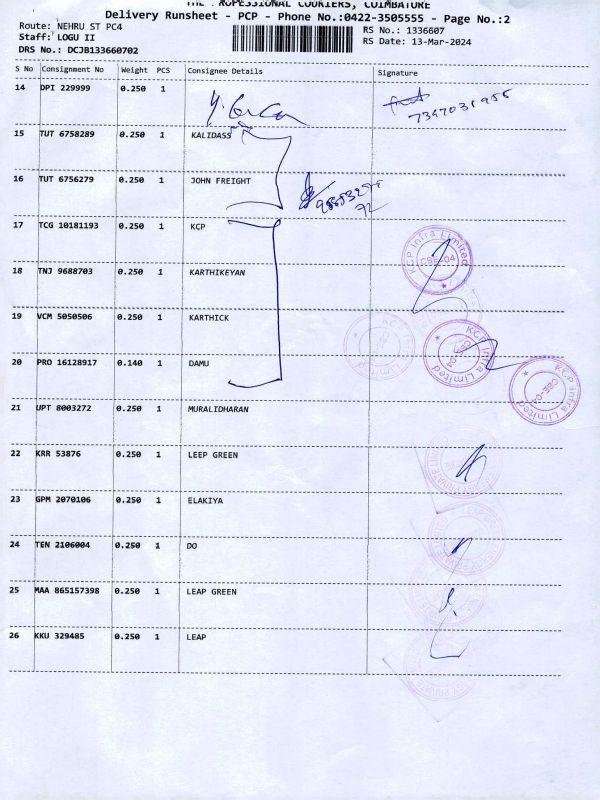 THE PROFESSIONAL COURIERS, COIMBATORE
Delivery Runsheet - PCP - Phone No.:0422-3505555 - Page No.:2
Route: NEHRU ST PC4
Staff: LOGU II
DRS No.: DCJB133660702
RS No.: 1336607
RS Date: 13-Mar-2024
S No Consignment No Weight PCS Consignee Details Signature
14 DPI 229999 0.250 1
15 TUT 6758289 0.250 1 KALIDASS
16 TUT 6756279 0.250 1 JOHN FREIGHT
17 TCG 10181193 0.250 1 KCP
KCP Infra Limited
CBE-04
18 TNJ 9688703 0.250 1 KARTHIKEYAN
19 VCM 5050506 0.250 1 KARTHICK
KCP Infra Limited
CBE-04
20 PRO 16128917 0.140 1 DAMU
KCP Infra Limited
CBE-04
21 UPT 8003272 0.250 1 MURALIDHARAN
22 KRR 53876 0.250 1 LEEP GREEN
23 GPM 2070106 0.250 1 ELAKIYA
24 TEN 2106004 0.250 1 DO
25 MAA 865157398 0.250 1 LEAP GREEN
26 KKU 329485 0.250 1 LEAP